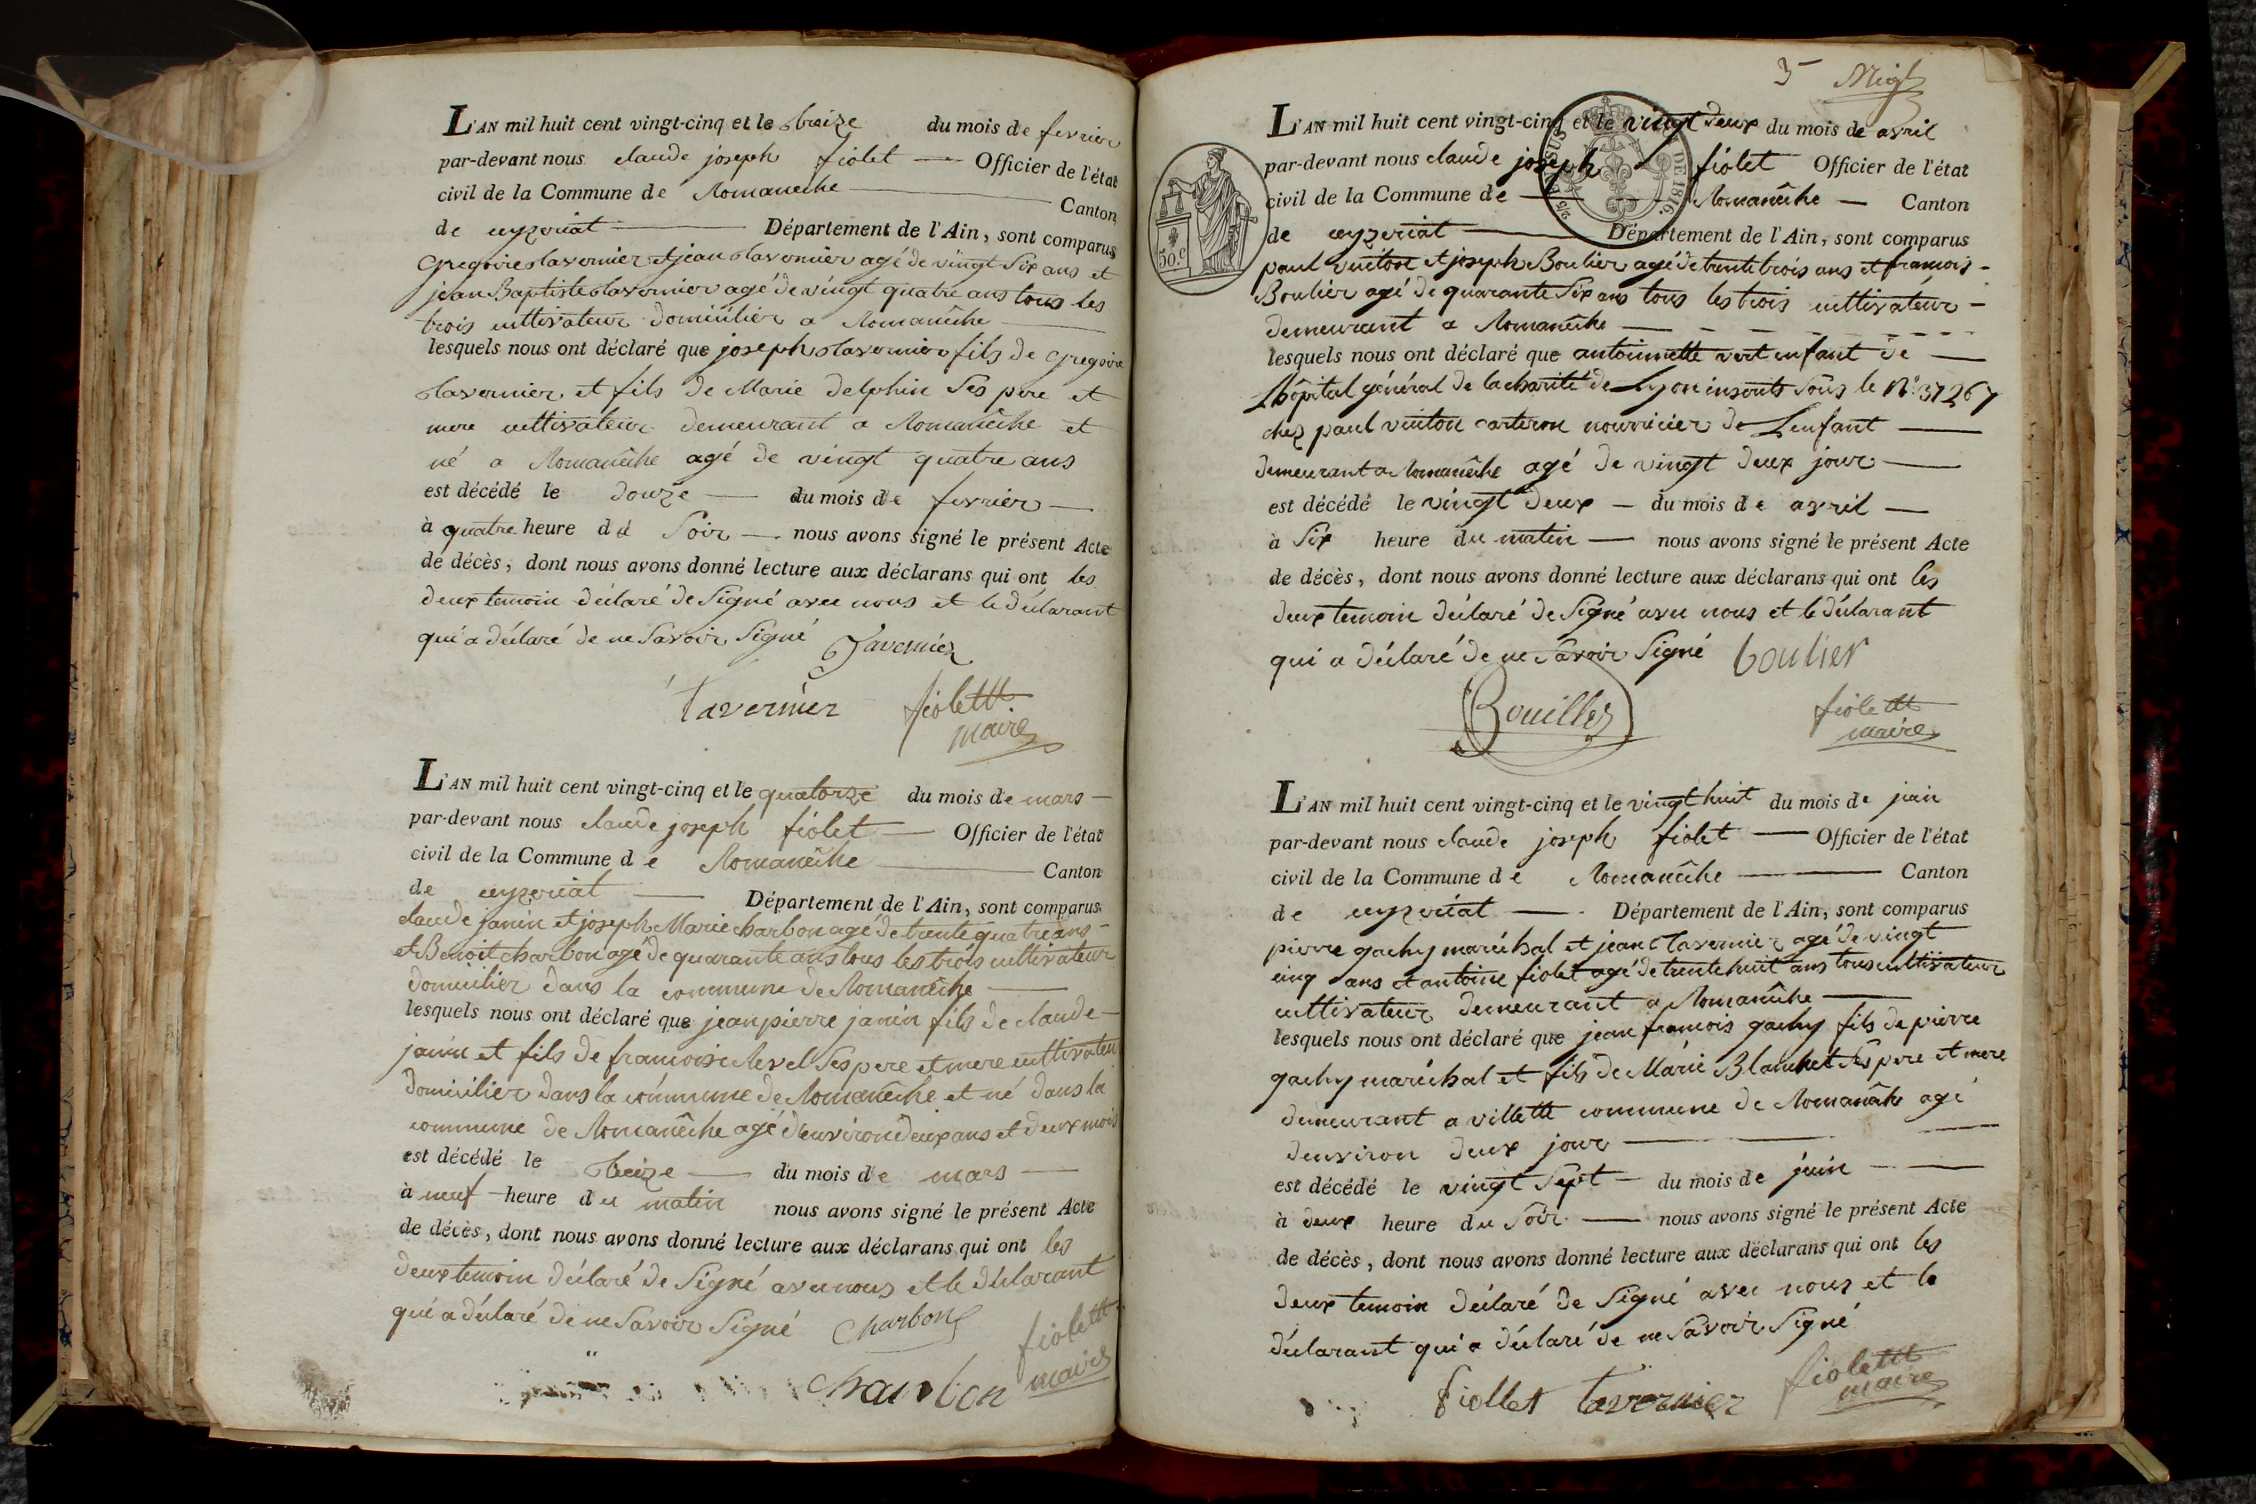 L'AN mil huit cent vingt-cinq et le treize du mois de fevrier
par-devant nous claude joseph fiolet — Officier de l'état
civil de la Commune de Romanêche — Canton
de ceyzeriat — Département de l'Ain, sont comparus
Gregoire tavernier et jean tavernier agé de vingt six ans et
jean Baptiste tavernier agé de vingt quatre ans tous les
trois cultivateur domicilier a Romanêche —
lesquels nous ont déclaré que joseph tavernier fils de Gregoire
tavernier et fils de Marie delphin ses pere et
mere cultivateur demeurant a Romanêche et
né a Romanêche agé de vingt quatre ans
est décédé le douze — du mois de fevrier —
à quatre heure du soir — nous avons signé le présent Acte
de décès, dont nous avons donné lecture aux déclarans qui ont les
deux temoin déclaré de signé avec nous et le déclarant
qui a déclaré de ne savoir signé Tavernier
tavernier fiolettt
maire
L'AN mil huit cent vingt-cinq et le quatorze du mois de mars —
par-devant nous claude joseph fiolet — Officier de l'état
civil de la Commune de Romanêche — Canton
de ceyzeriat — Département de l'Ain, sont comparus
claude janin et joseph Marie charbon agé de trente quatre ans —
et Benoit charbon agé de quarante ans tous les trois cultivateur
domicilier dans la commune de Romanêche —
lesquels nous ont déclaré que jean pierre janin fils de claude —
janin et fils de francoise clevel ses pere et mere cultivateur
domicilier dans la commune de Romanêche et né dans la
commune de Romanêche agé denviron deux ans et deux mois
est décédé le treize — du mois de mars —
à neuf heure du matin nous avons signé le présent Acte
de décès, dont nous avons donné lecture aux déclarans qui ont les
deux temoin déclaré de signé avec nous et le déclarant
qui a déclaré de ne savoir signé Charbon fiolettt
charbon maire
5
L'AN mil huit cent vingt-cinq et le vingt deux du mois de avril
par-devant nous claude joseph fiolet Officier de l'état
civil de la Commune de — Romanêche — Canton
de ceyzeriat — Département de l'Ain, sont comparus
paul vuiton et joseph Boulier agé de trente trois ans et francois —
Boulier agé de quarante six ans tous les trois cultivateur —
demeurant a Romanêche —
lesquels nous ont déclaré que antoinette vert enfant de —
Lhôpital général de la charité de Lyon inscrits sous le N° 37267
chez paul vuiton carteron nourricier de Lenfant —
demeurant a Romanêche agé de vingt deux jour —
est décédé le vingt deux — du mois de avril —
à six heure du matin — nous avons signé le présent Acte
de décès, dont nous avons donné lecture aux déclarans qui ont les
deux temoin déclaré de signé avec nous et le déclarant
qui a déclaré de ne savoir signé boulier
Bouillez fiolettt
maire
50.c
DE 1816.
L'AN mil huit cent vingt-cinq et le vingt huit du mois de juin
par-devant nous claude joseph fiolet — Officier de l'état
civil de la Commune de Romanêche — Canton
de ceyzeriat — Département de l'Ain, sont comparus
pierre gachy maréchal et jean tavernier agé de vingt
cinq ans et antoine fiolet agé de trente huit ans tous cultivateur
cultivateur demeurant a Romanêche —
lesquels nous ont déclaré que jean francois gachy fils de pierre
gachy maréchal et fils de Marie Blanchet ses pere et mere
demeurant a villette commune de Romanêche agé
denviron deux jour —
est décédé le vingt sept — du mois de juin —
à deux heure du soir — nous avons signé le présent Acte
de décès, dont nous avons donné lecture aux déclarans qui ont les
deux temoin déclaré de signé avec nous et le
déclarant qui a déclaré de ne savoir signé
fiollet tavernier fiolettt
maire